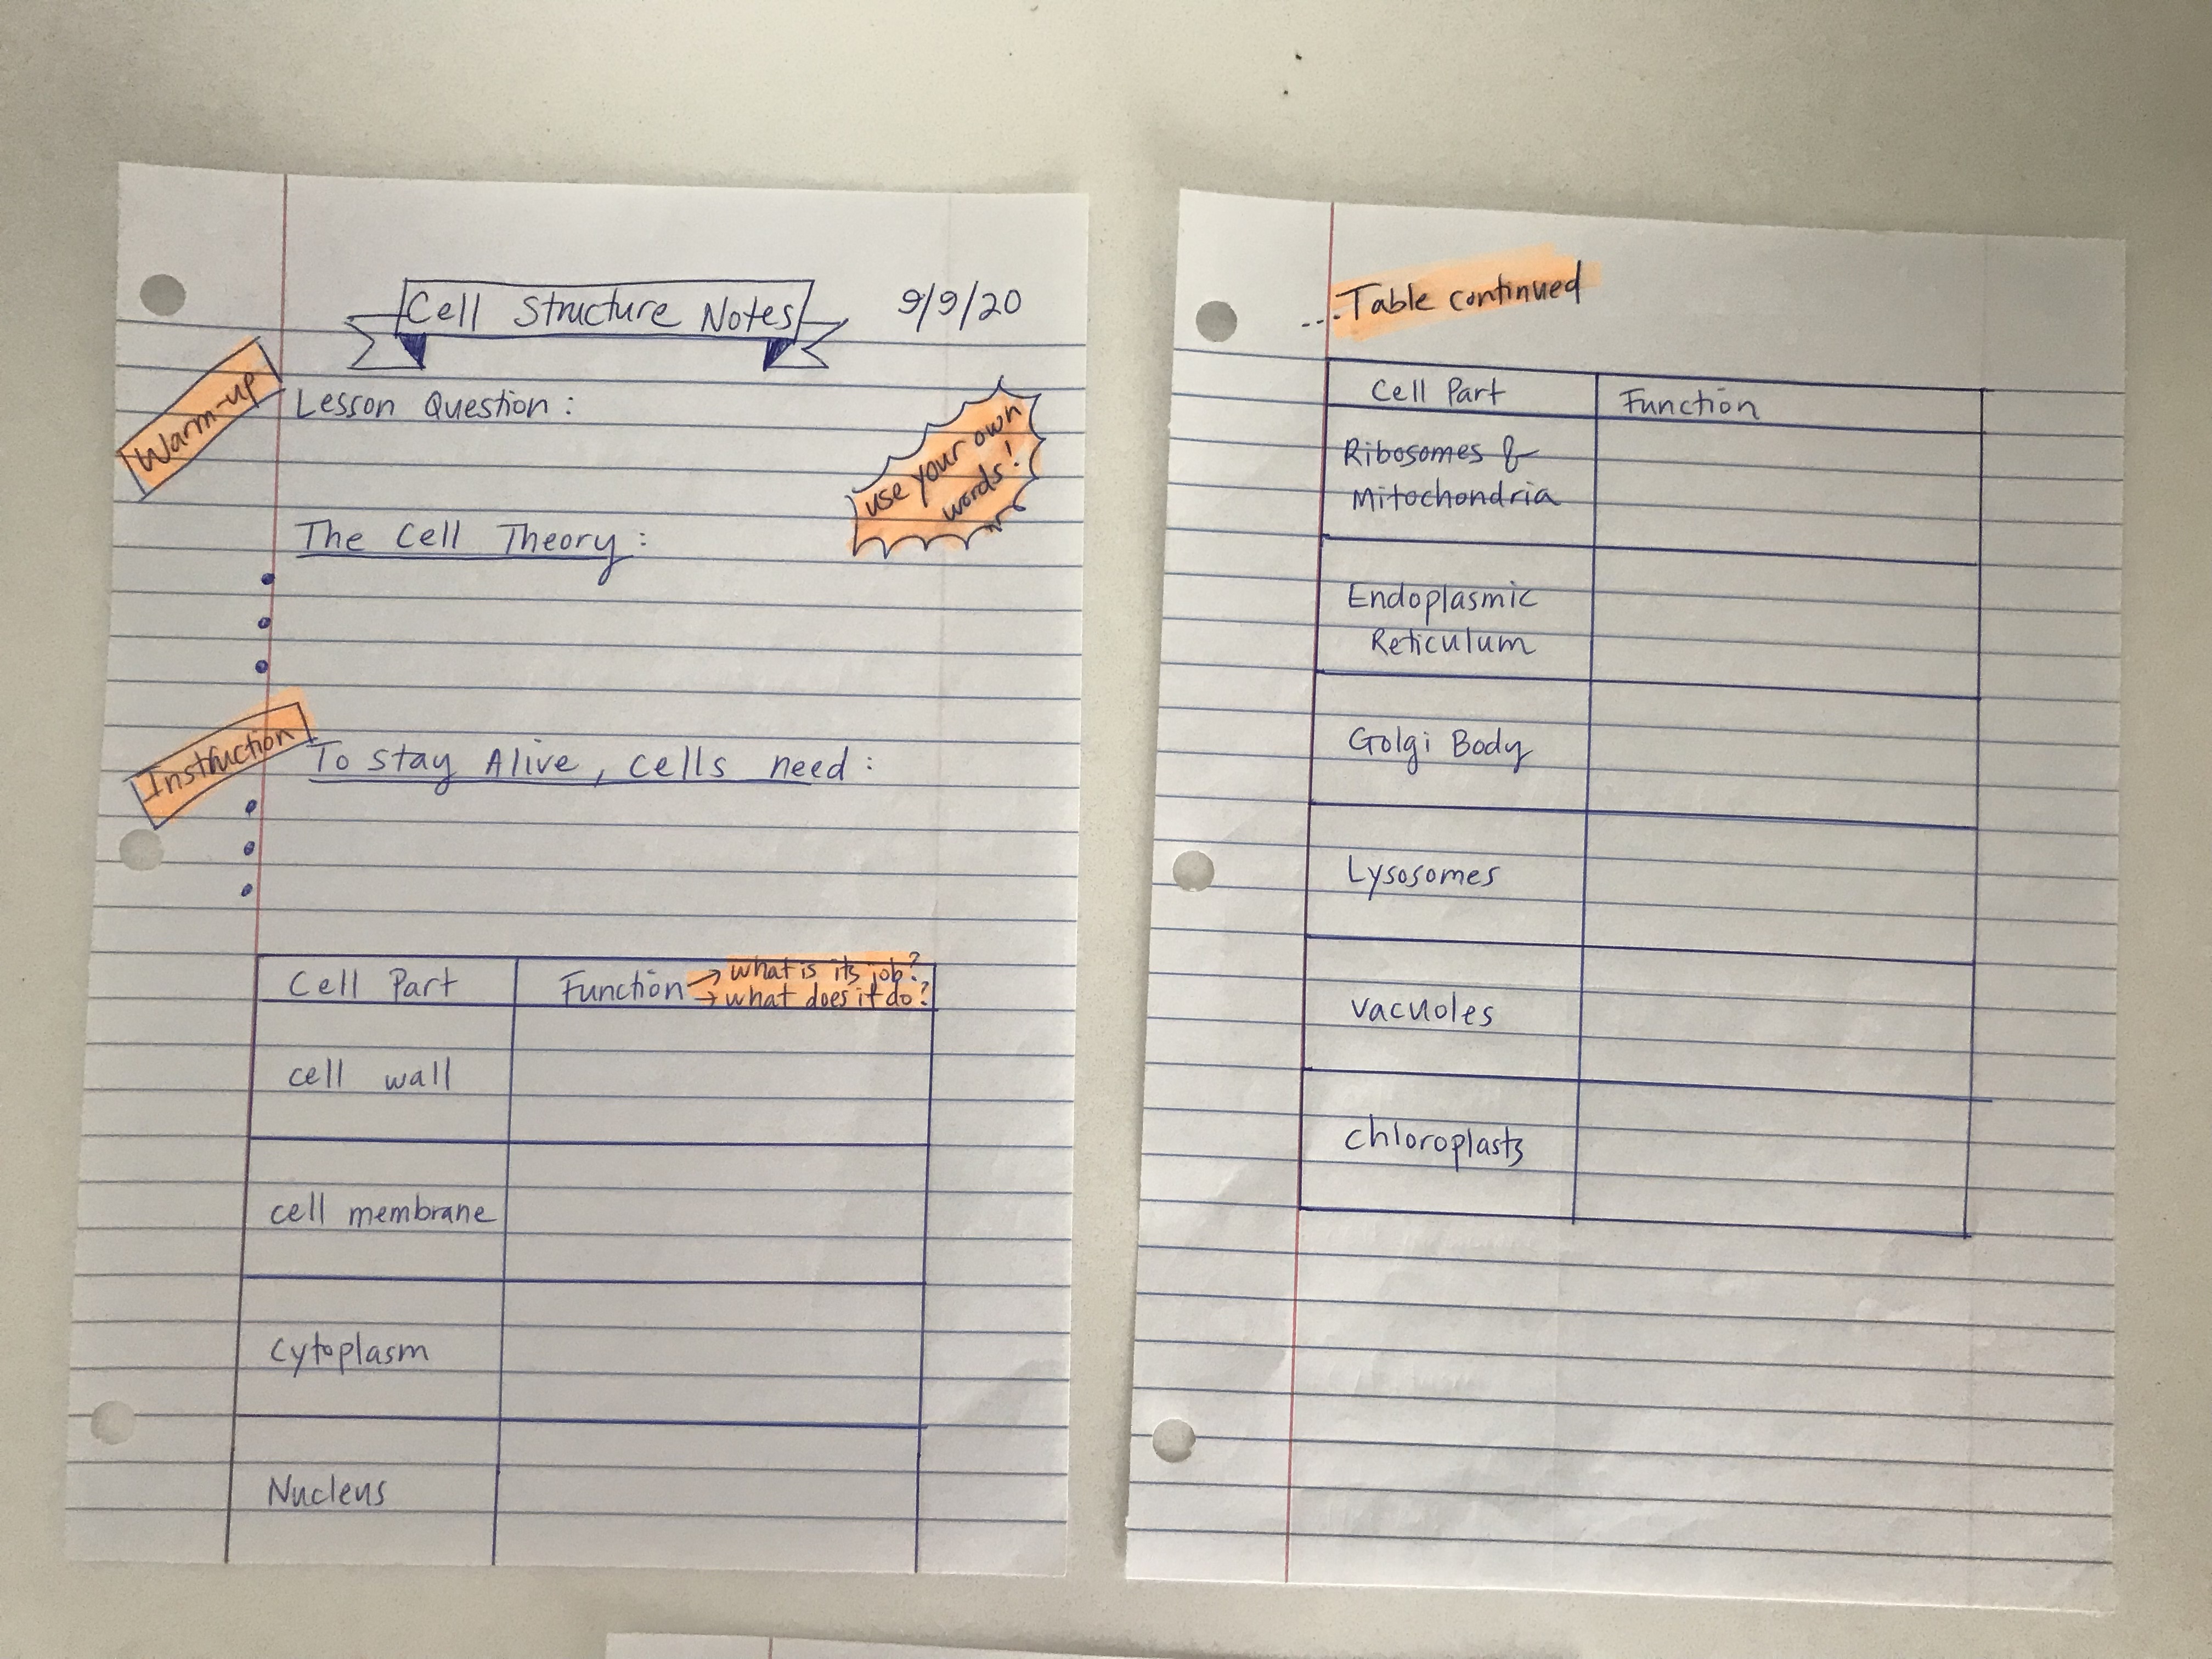 Cell Structure Notes 9/9/20
Warm-up
Lesson Question:
use your own
words!
The Cell Theory:
Instruction
To stay Alive, cells need:
Cell Part Function → what is its job?
→ what does it do?
cell wall
cell membrane
Cytoplasm
Nucleus
...Table continued
Cell Part Function
Ribosomes &
Mitochondria
Endoplasmic
Reticulum
Golgi Body
Lysosomes
Vacuoles
Chloroplasts